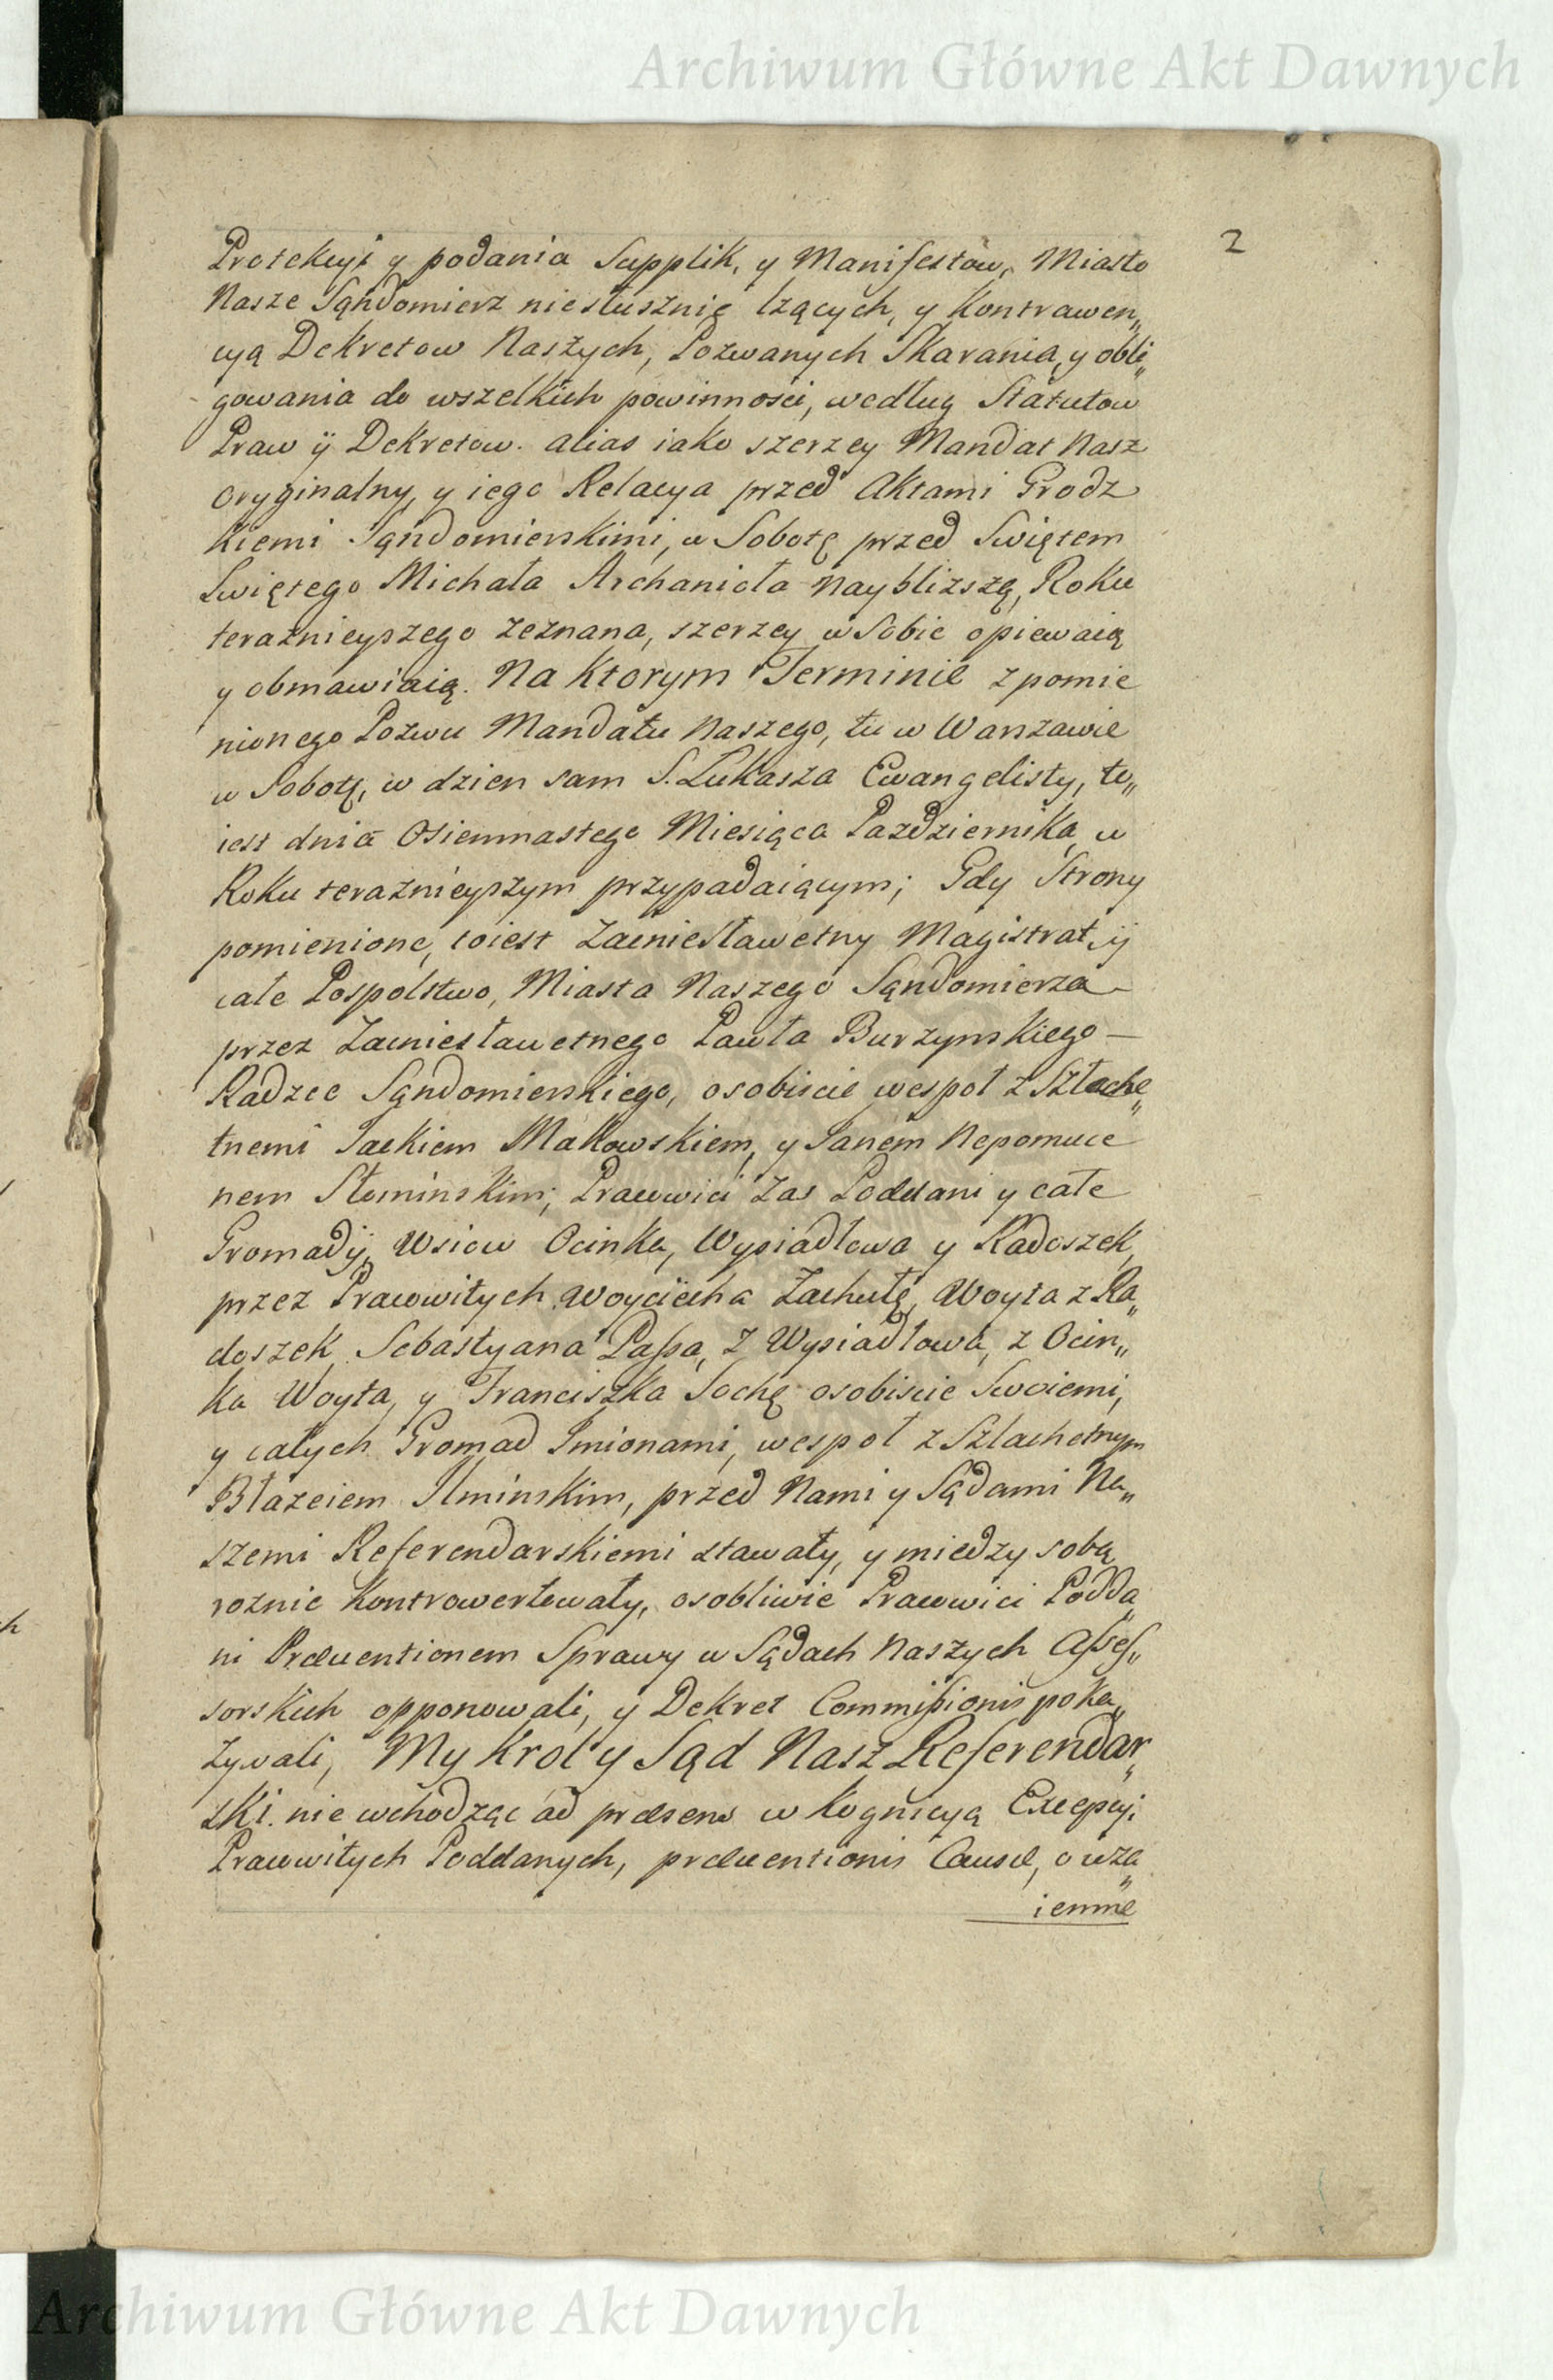 Archiwum Główne Akt Dawnych
2
Protekcyi y podania Supplik, y Manifestow, Miasto
Nasze Sąndomierz niesłusznię lżących, y Kontrawen„
cyą Dekretow Naszych, Pozwanych Skarania, y obli„
gowania do wszelkich powinności, według Statutow
Praw ÿ Dekretow. alias iako szerzey Mandat Nasz
oryginalny, y iego Relacya przed Aktami Grodz
kiemi Sąndomierskimi, w Sobotę przed Swiętem
Swiętego Michała Archanioła naybliższą, Roku
teraznieyszego zeznana, szerzey w Sobie opiewaią
y obmawiaią. Na Ktorym Terminie z pomie
nionego Pozwu Mandatu Naszego, tu w Warszawie
w Sobotę, w dzien sam S. Łukasza Ewangelisty, to„
iest dnia Osiemnastego Miesiąca Pazdziernika w
Roku teraznieyszym przypadaiącym; Gdy Strony
pomienione, toiest Zacniesławetny Magistrat, ÿ
całe Pospolstwo, Miasta Naszego Sąndomierza
przez Zacniesławetnego Pawła Burzynskiego —
Radzce Sąndomierskiego, osobiscie wespoł z Szlache„
tnemi Jackiem Makowskiem, y Janem Nepomuce
nem Słominskim; Prawwici Zas Poddani y całe
Gromadÿ, Wsiow Ocinka, Wysiadłowa y Radoszek,
przez Prawwitych Woyciecha Zachutę, Woyta z Ra„
doszek, Sebastyana Passa, z Wysiadłowa, z Ocin„
ka Woyta, y Franciszka Sochę osobiscie Swoiemi,
y całych Gromad Imionami, wespoł z Szlachetnym
Błazeiem Ilminskim, przed Nami y Sądami Na„
szemi Referendarskiemi stawały, y miedzy sobą
roznie Kontrowertowały, osobliwie Prawwici Podda„
ni Præventionem Sprawy w Sądach Naszych Asses„
sorskich opponowali, y Dekret Commissionis poka„
zywali, My Krol y Sąd Nasz Referendar„
ski. nie wchodząc ad præsens w Kognicyą Excepcyi
Prawwitych Poddanych, præventionis Causæ, o wza„
iemne
Archiwum Główne Akt Dawnych